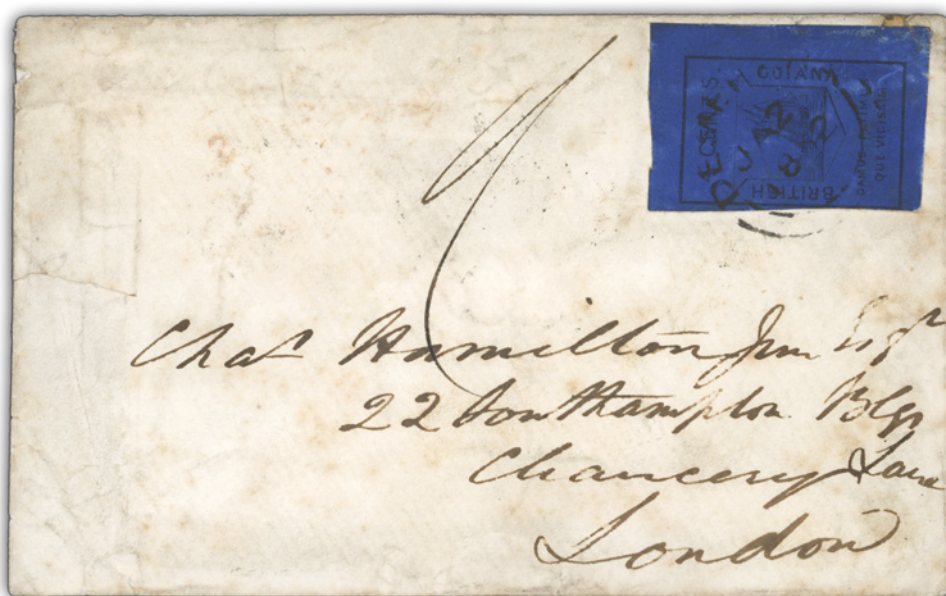 BRITISH
GUIANA
DAMUS
QUE VICISSIM
Chaˢ Hamilton Jun Esqʳ
22 Southampton Blgs
Chancery Lane
London